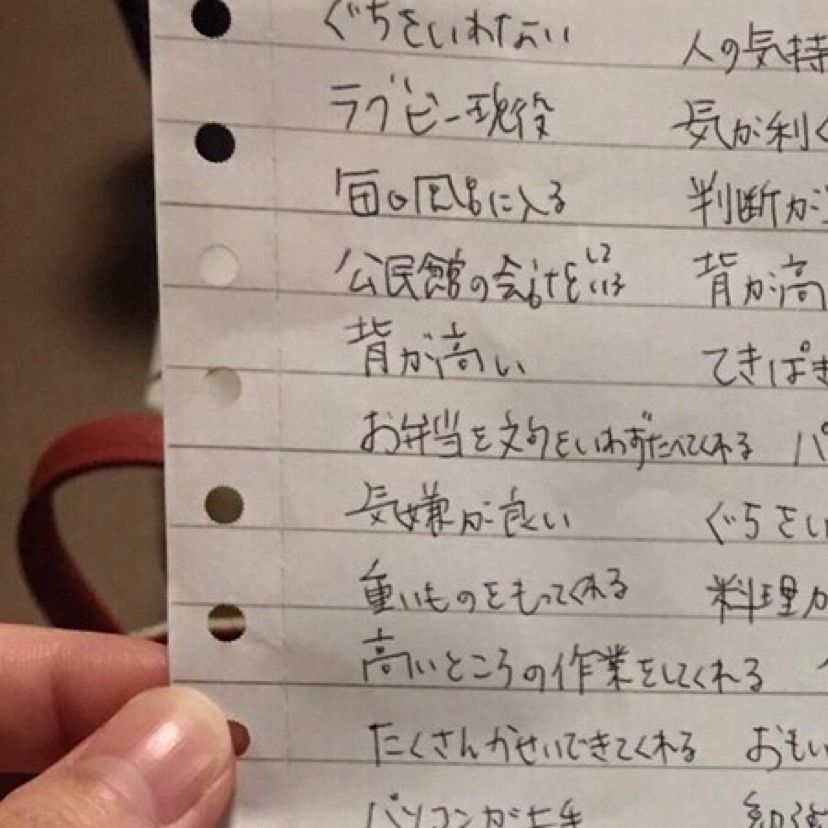 ぐちをいわない 人の気持
ラグビー現役 気が利く
毎日風呂に入る 判断が
公民館の会計をしている 背が高
背が高い てきぱき
お弁当を文句をいわずたべてくれる パ
気嫌が良い ぐちをい
重いものをもってくれる 料理が
高いところの作業をしてくれる
たくさんかせいできてくれる おもい
パソコンが上手 勉強